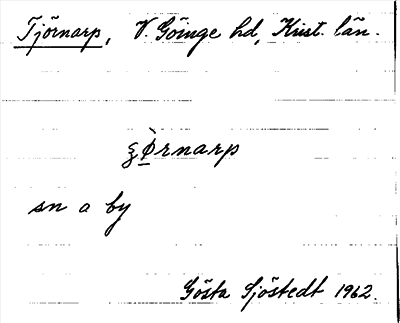 Tjörnarp, V. Göinge hd, Krist. län.
ʒø̀rnarp
sn o by
Gösta Sjöstedt 1962.